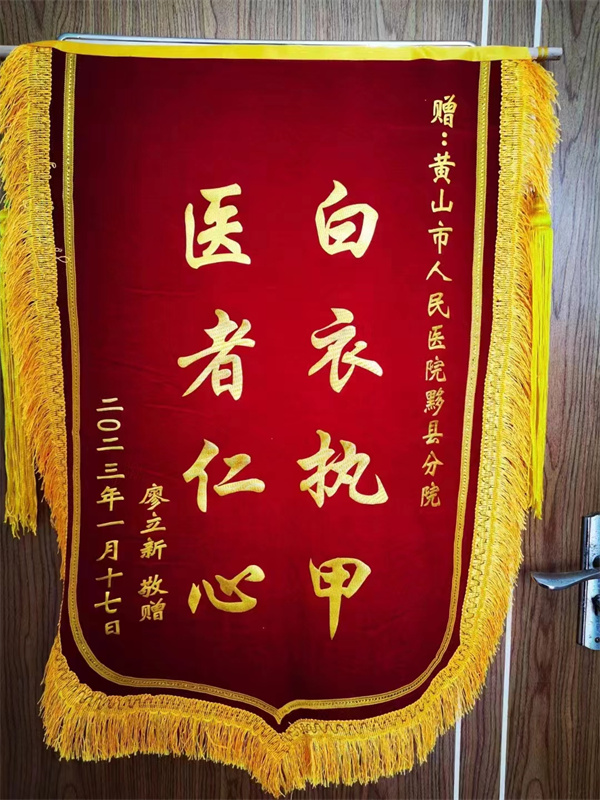 赠：黄山市人民医院黟县分院
白衣执甲
医者仁心
廖立新 敬赠
二〇二三年一月十七日